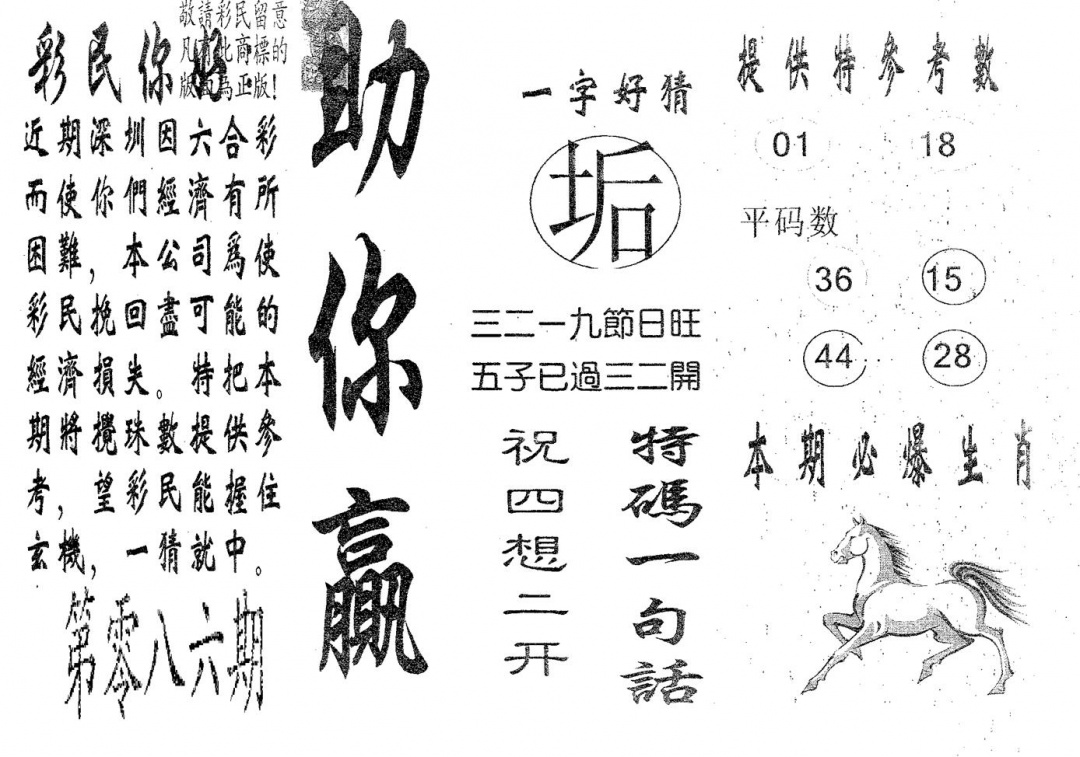 敬請彩民留意
凡有北商標的
版面為正版!
彩民你好
近期深圳因六合彩
而使你們經濟有所
困難，本公司爲使
彩民挽回盡可能的
經濟損失。特把本
期將攪珠數提供參
考，望彩民能握住
玄機，一猜就中。
第零八六期
助你贏
一字好猜
垢
三二一九節日旺
五子已過三二開
特碼一句話
祝四想二开
提供特參考數
01 18
平码数
36 15
44 28
本期必爆生肖